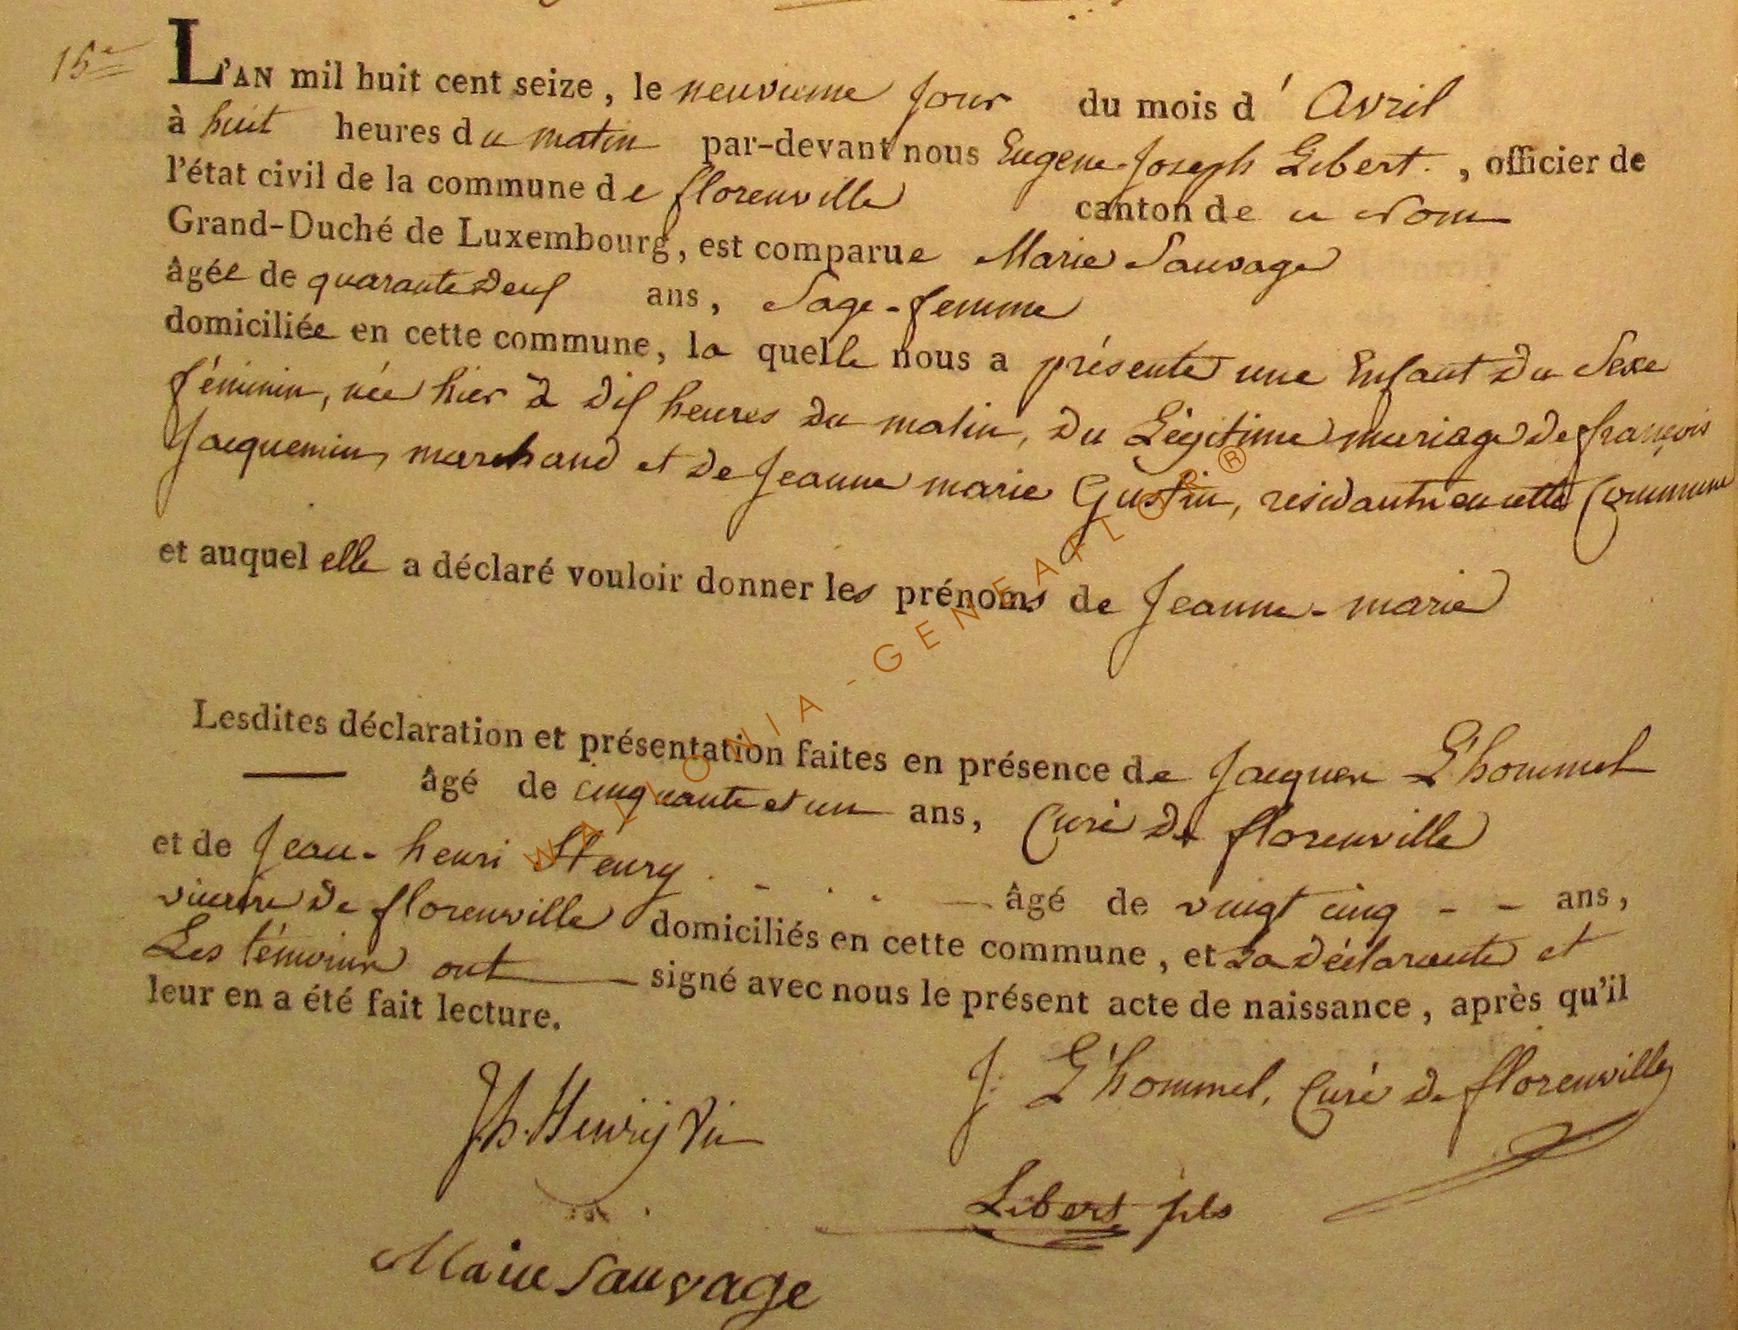 15e
L'AN mil huit cent seize, le neuvieme jour du mois d'Avril
à huit heures du matin par-devant nous Eugene-Joseph Libert, officier de
l'état civil de la commune de florenville canton de ce Nom
Grand-Duché de Luxembourg, est comparue Marie Sauvage
âgée de quarante deux ans, Sage-femme
domiciliée en cette commune, la quelle nous a présenté une Enfant du Sexe
féminin, née hier à dix heures du matin, du Légitime mariage de françois
Jacquemin, marchand et de Jeanne marie Gustin, residants en cette Commune
et auquel elle a déclaré vouloir donner les prénoms de Jeanne-marie
Lesdites déclaration et présentation faites en présence de Jacques L'hommel
âgé de cinquante et un ans, Curé de florenville
et de Jean-henri Henry - - âgé de vingt cinq - - ans,
vicaire de florenville domiciliés en cette commune, et La déclarante et
Les témoins ont signé avec nous le présent acte de naissance, après qu'il
leur en a été fait lecture.
J: L'hommel, Curé de florenville
J.h. Henrÿ Vic
Libert fils
Marie Sauvage
WALLONIA-GENEAFLOR®